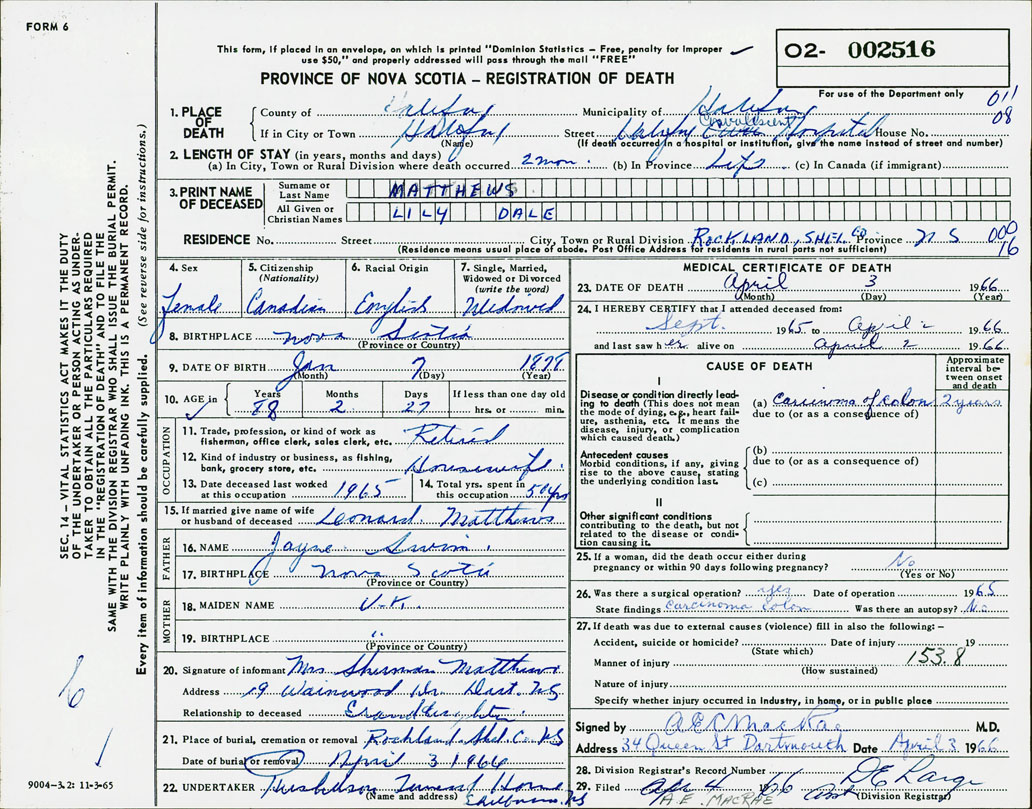 FORM 6
This form, if placed in an envelope, on which is printed "Dominion Statistics – Free, penalty for improper
use $50," and properly addressed will pass through the mail "FREE"
PROVINCE OF NOVA SCOTIA – REGISTRATION OF DEATH
O2- 002516
For use of the Department only
011
08
1. PLACE OF DEATH
County of Halifax Municipality of Halifax
If in City or Town Halifax Street Convalescent Hospital House No.
(Name) (If death occurred in a hospital or institution, give the name instead of street and number)
2. LENGTH OF STAY (in years, months and days)
(a) In City, Town or Rural Division where death occurred 2 mon. (b) In Province Life (c) In Canada (if immigrant)
3. PRINT NAME OF DECEASED
Surname or Last Name MATTHEWS
All Given or Christian Names LILY DALE
RESIDENCE No. Street City, Town or Rural Division ROCKLAND, SHEL. CO Province N S 000
16
(Residence means usual place of abode. Post Office Address for residents in rural parts not sufficient)
4. Sex
Female
5. Citizenship
(Nationality)
Canadian
6. Racial Origin
English
7. Single, Married, Widowed or Divorced
(write the word)
Widowed
8. BIRTHPLACE Nova Scotia
(Province or Country)
9. DATE OF BIRTH Jan 7 1878
(Month) (Day) (Year)
10. AGE in Years Months Days If less than one day old
88 2 27 hrs. or min.
OCCUPATION
11. Trade, profession, or kind of work as
fisherman, office clerk, sales clerk, etc. Retired
12. Kind of industry or business, as fishing,
bank, grocery store, etc. Housewife.
13. Date deceased last worked
at this occupation 1965
14. Total yrs. spent in
this occupation 50 yrs
15. If married give name of wife
or husband of deceased Leonard Matthews
FATHER
16. NAME Jayne Swim.
17. BIRTHPLACE Nova Scotia
(Province or Country)
MOTHER
18. MAIDEN NAME U.K.
19. BIRTHPLACE "
(Province or Country)
20. Signature of informant Mrs Sherman Matthews
Address 19 Wainwood Dr. Dart. NS
Relationship to deceased Granddaughter
21. Place of burial, cremation or removal Rockland Shel. Co. NS
Date of burial or removal April 3 1966
22. UNDERTAKER Funeral Home
(Name and address) Shelburne, NS
MEDICAL CERTIFICATE OF DEATH
23. DATE OF DEATH April 3 1966
(Month) (Day) (Year)
24. I HEREBY CERTIFY that I attended deceased from:
Sept. 1965 to April 2 1966
and last saw her alive on April 2 1966
CAUSE OF DEATH
Approximate interval between onset and death
I
Disease or condition directly leading to death (This does not mean the mode of dying, e.g., heart failure, asthenia, etc. It means the disease, injury, or complication which caused death.)
(a) Carcinoma of Colon 2 years
due to (or as a consequence of)
Antecedent causes
Morbid conditions, if any, giving rise to the above cause, stating the underlying condition last.
(b)
due to (or as a consequence of)
(c)
II
Other significant conditions
contributing to the death, but not related to the disease or condition causing it.
25. If a woman, did the death occur either during
pregnancy or within 90 days following pregnancy? No
(Yes or No)
26. Was there a surgical operation? yes Date of operation 1965
State findings Carcinoma Colon Was there an autopsy? No
27. If death was due to external causes (violence) fill in also the following:–
Accident, suicide or homicide? Date of injury 19
(State which)
Manner of injury 153.8
(How sustained)
Nature of injury
Specify whether injury occurred in industry, in home, or in public place
Signed by A E C MacRae M.D.
Address 34 Queen St Dartmouth Date April 3 1966
28. Division Registrar's Record Number
29. Filed Apr 4 1966 D E Large
(Division Registrar)
A.E. MACRAE
SEC. 14 – VITAL STATISTICS ACT MAKES IT THE DUTY
OF THE UNDERTAKER OR PERSON ACTING AS UNDER-
TAKER TO OBTAIN ALL THE PARTICULARS REQUIRED
IN THE "REGISTRATION OF DEATH" AND TO FILE THE
SAME WITH THE DIVISION REGISTRAR WHO SHALL ISSUE THE BURIAL PERMIT.
WRITE PLAINLY WITH UNFADING INK. THIS IS A PERMANENT RECORD.
Every item of information should be carefully supplied. (See reverse side for instructions.)
6
9004-3.2: 11-3-65